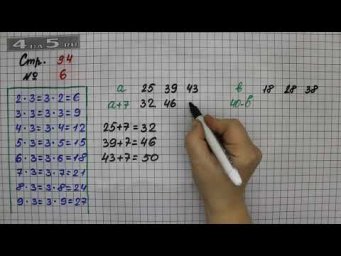 4НА5.RU
Стр. 94
№ 6
2·3=3·2=6
3·3=3·3=9
4·3=3·4=12
5·3=3·5=15
6·3=3·6=18
7·3=3·7=21
8·3=3·8=24
9·3=3·9=27
а 25 39 43
а+7 32 46
25+7=32
39+7=46
43+7=50
в 18 28 38
40-в